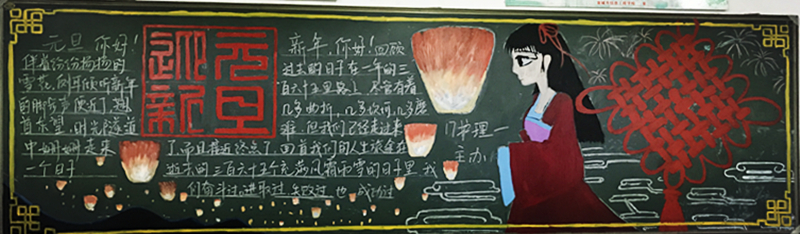 元旦 你好!
伴着纷纷扬扬的
雪花,侧耳倾听新年
的脚步声便近了,翘
首东望,时光隧道
中姗姗走来
一个日子
元旦
迎新
新年,你好!回顾
过去的日子在一年的三
百六十五里路上,尽管有着
几多曲折,几多坎坷,几多磨
难,但我们已经走过来
了,而且接近终点了,回首我们的人生旅途在
逝去的三百六十五个充满风霜雨雪的日子里,我
们奋斗过,进取过,失败过 也成功过
17护理一
主办